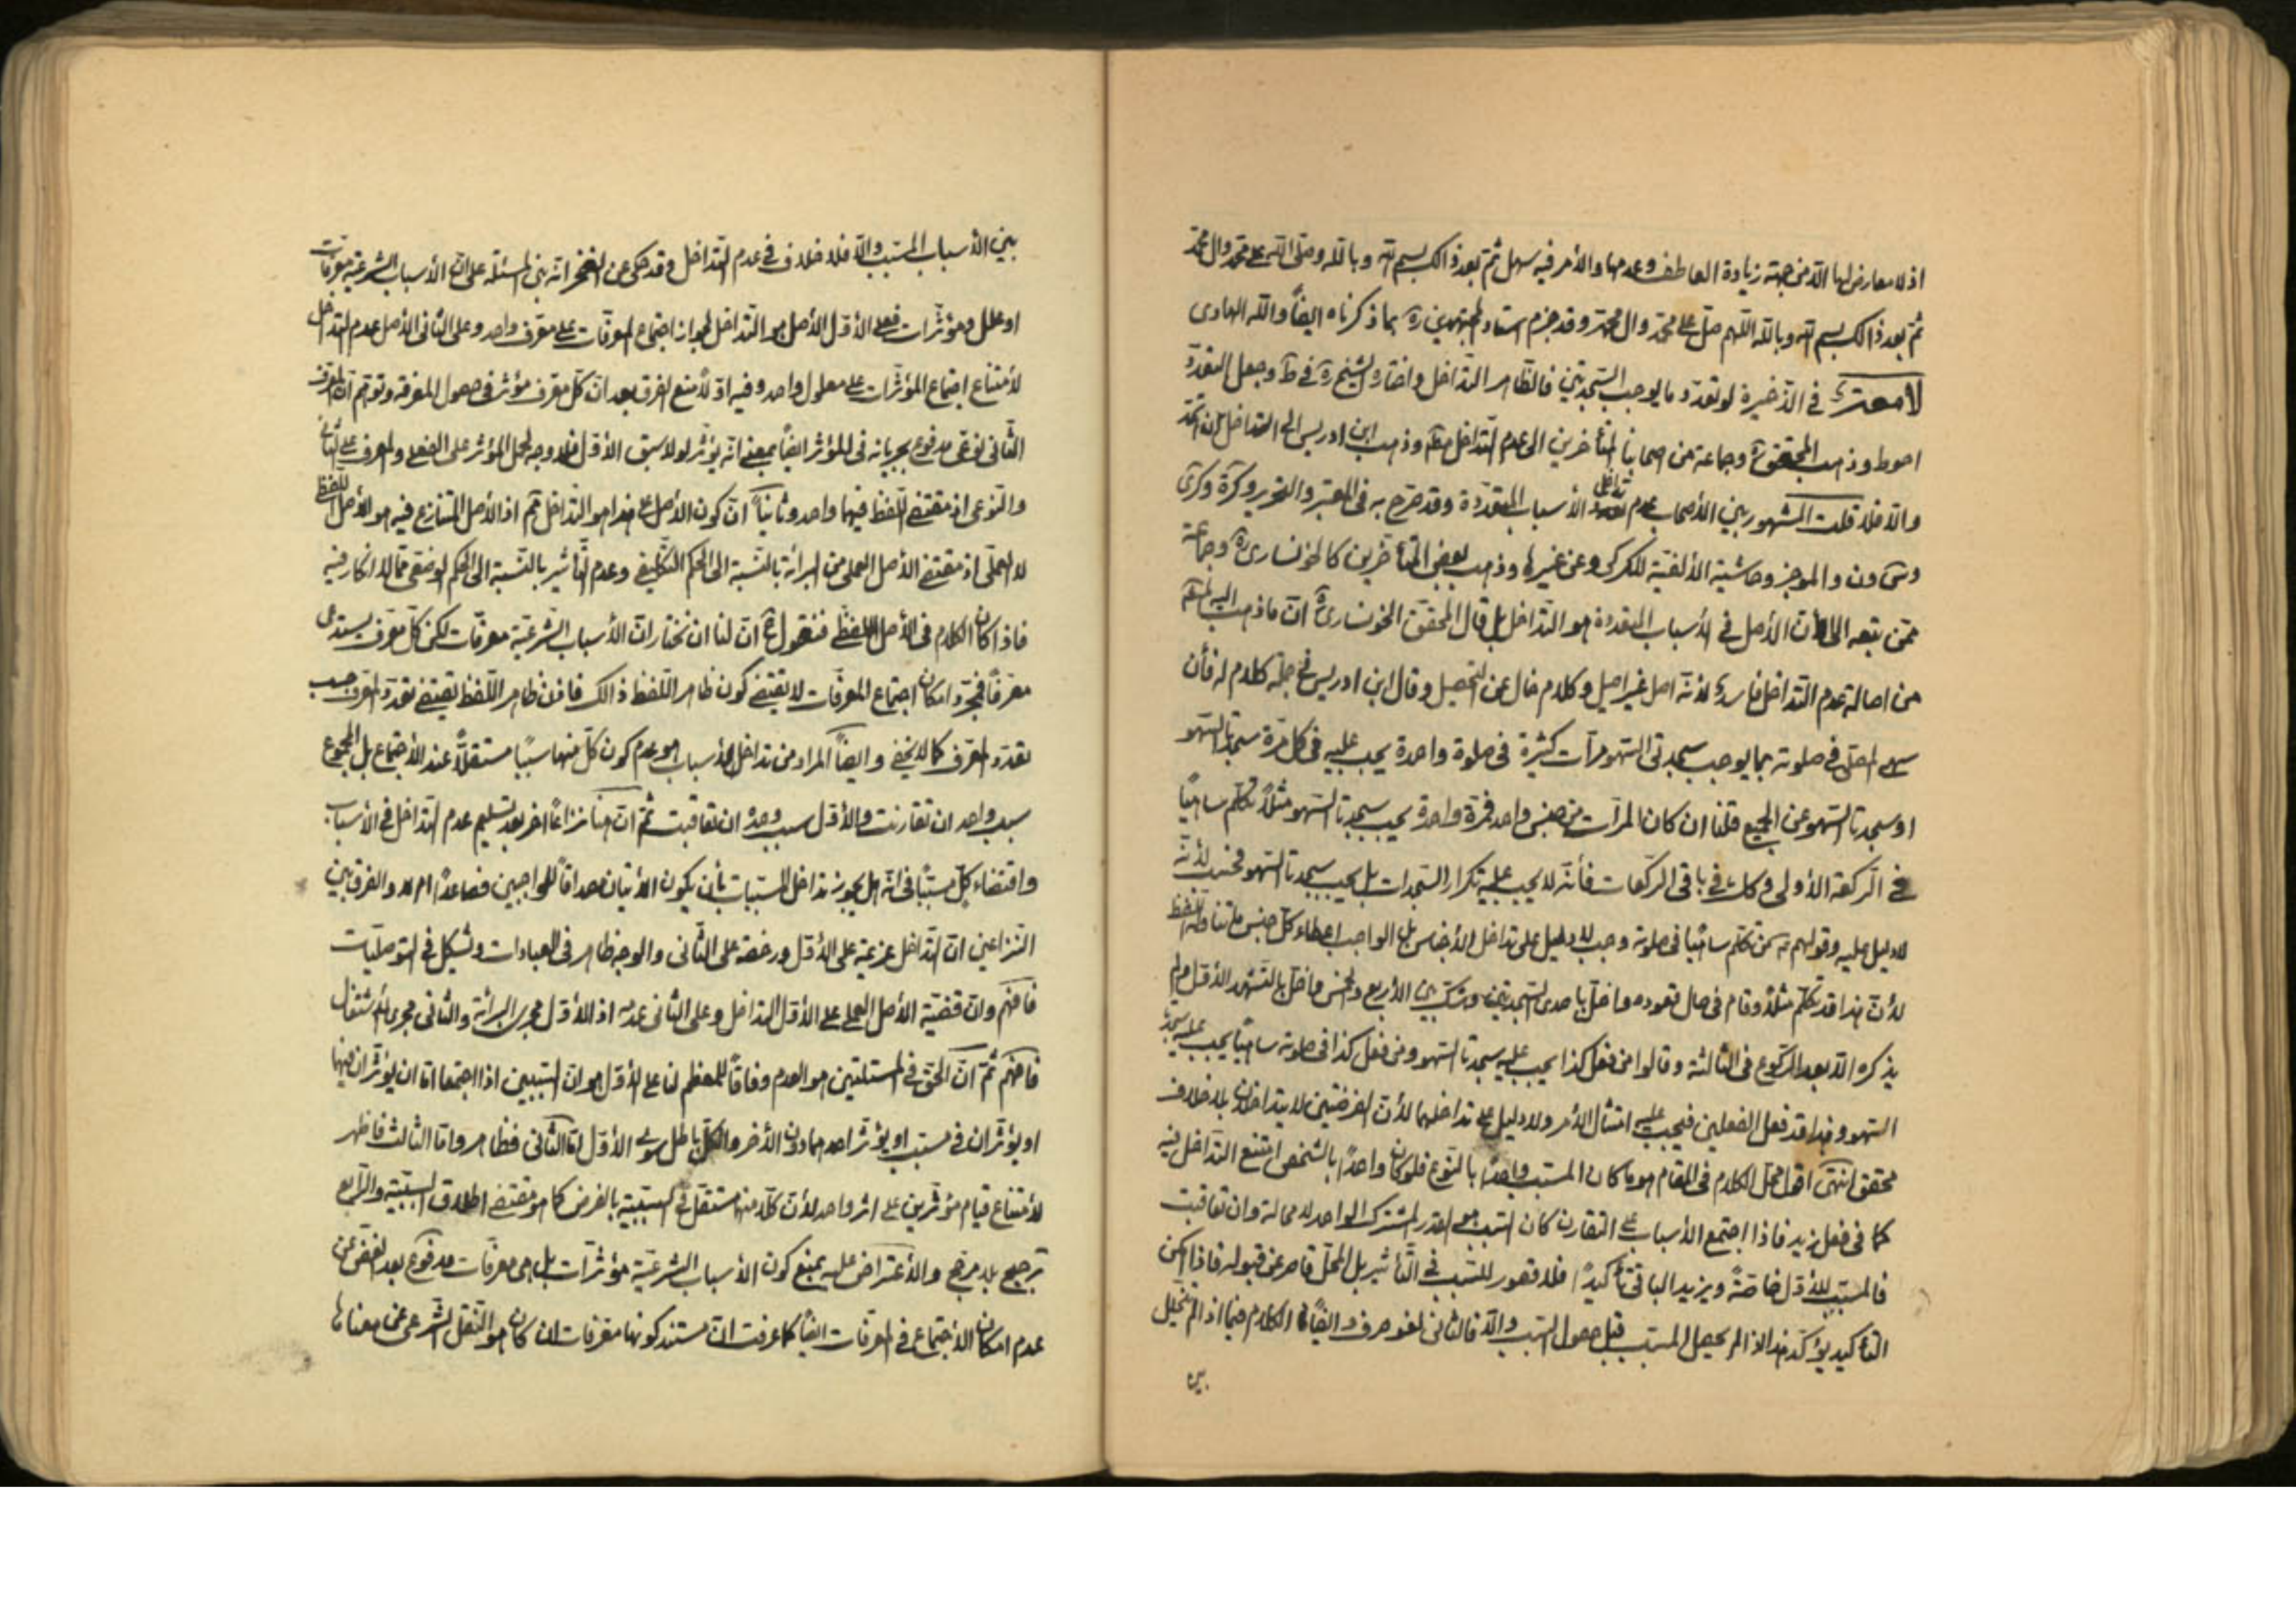 اذ لا معارض لها الّا من جهة زيادة العاطف وعدمها والأمر فيه سهل ثمّ بعد ذالك بسم الله وبالله وصلّى الله على محمّد وال محمّد
ثمّ بعد ذالك بسم الله وبالله اللهم صلّ على محمّد وال محمّد وقد جزم استاد المجتهدين ره بما ذكرناه ايضاً والله الهادى
فى الذّخيرة لو تعدّد ما يوجب السّجدتين فالظّاهر التداخل واختاره الشيخ ره فى ط وجعل التعدّد
احوط وذهب المحقق ره وجماعة من اصحابنا المتأخرين الى عدم التّداخل مطلقا وذهب ابن ادريس الى التداخل ان اتّحد
والّا فلا قلت المشهور بين الأصحاب عدم تداخل الأسباب المتعدّدة وقد صرّح به فى المعتبر والتحرير وكرة وكرى
وس ون والموجز وحاشية الألفيّة للكركى وعن غيرها وذهب بعض المتأخّرين كالخونسارى ره وجماعة
ممّن تبعه الى انّ الأصل فى الأسباب المتعدّدة هو التّداخل بل قال المحقّق الخونسارى ره انّ ما ذهب اليه
من اصالة عدم التّداخل فاسد لأنّه اصل غير اصيل وكلام خال عن التحصيل وقال ابن ادريس فى جملة كلام له فأن
سهى المصلّى فى صلوته بما يوجب سجدتى السّهو مرّات كثيرة فى صلوة واحدة يجب عليه فى كلّ مرّة سجدتا السّهو
او سجدتا السّهو عن الجميع قلنا ان كان المرّات من جنس واحد فمرّة واحدة يجب سجدتا السّهو مثلاً تكلّم ساهياً
فى الرّكعة الأولى وكذلك فى باقى الرّكعات فأنّه لا يجب عليه تكرار السّجدات بل يجب سجدتا السّهو فحسب لأنّه
لا دليل عليه وقولهم من تكلّم ساهياً فى صلوته وجب لا دليل على تداخل الأجناس بل الواجب اعطاء كلّ جنس ما تناوله اللّفظ
لأنّ هذا قد تكلّم مثلاً وقام فى حال قعوده واخلّ باحدى السّجدتين وشكّ بين الأربع والخمس واخلّ بالتّشهّد الأوّل ولم
يذكره الّا بعد الرّكوع فى الثالثة وقالوا من فعل كذا يجب عليه سجدتا السّهو ومن فعل كذا فى صلوته ساهياً يجب عليه سجدتا
السّهو وهذا قد فعل الفعلين فيجب عليه امتثال الأمر ولا دليل على تداخلهما لأنّ الفرضين لا يتداخلان بلا خلاف
محقق انتهى اقول محلّ الكلام فى المقام هو ما كان المسبّب واحداً بالنّوع فلو كان واحداً بالشّخص امتنع التّداخل فيه
كما فى فعل زيد فاذا اجتمع الأسباب على التقارن كان السّبب هو القدر المشترك الواحد لا محالة وان تعاقبت
فالمسبّب للأوّل خاصّة ويزيد الباقى تأكيداً فلا قصور للسّبب فى التّأثير بل المحلّ قاصر عن قبوله فاذا امكن
التأكيد يؤكّد هذا اذا لم يحصل المسبّب قبل حصول السّبب والّا فالثانى لغو صرف وايضاً الكلام فيما اذا لم يتخلّل
بين
بين الأسباب المسبّب والّا فلا خلاف فى عدم التّداخل وقد حكى عن الفخر انّه بنى المسئلة على انّ الأسباب الشرعيّة معرّفات
او علل ومؤثّرات فعلى الأوّل الأصل هو التداخل لجواز اجتماع المعرّفات على معرّف واحد وعلى الثّانى الأصل عدم التّداخل
لأمتناع اجتماع المؤثّرات على معلول واحد وفيه اوّلاً منع الفرق بعد انّ كلّ معرّف مؤثّر فى حصول المعرفة وتوهّم انّ المعرّف
الثّانى لغو مدفوع بجريانه فى المؤثّر ايضاً بمعنى انّه يؤثّر لولا سبق الأوّل فلا وجه لحمل المؤثّر على الفعلى والمعرّف على الشّأنى
والنّوعى اذ مقتضى اللّفظ فيهما واحد وثانياً انّ كون الأصل على هذا هو التّداخل ثم اذ الأصل المتنازع فيه هو الأصل اللّفظى
لا العملى اذ مقتضى الأصل العملى من البرائة بالنّسبة الى الحكم التّكليفى وعدم التّأثير بالنّسبة الى الحكم الوضعى ممّا لا انكار فيه
فاذا كان الكلام فى الأصل اللّفظى فنقول انّ لنا ان نختار انّ الأسباب الشّرعيّة معرّفات لكن كلّ معرّف يستدعى
معرّفاً فمجرّد امكان اجتماع المعرّفات لا يقتضى كون ظاهر اللّفظ ذالك فاذن ظاهر اللّفظ يقتضى تعدّد المعرّف حسب
تعدّد المعرّف كما لا يخفى وايضاً المراد من تداخل الأسباب هو عدم كون كلّ منها سبباً مستقلّاً عند الأجتماع بل المجموع
سبب واحد ان تقارنت والأوّل سبب وحده ان تعاقبت ثمّ انّ هنا نزاعاً اخر بعد تسليم عدم التّداخل فى الأسباب
واقتضاء كلّ مسبّباً فى انّه هل يجوز تداخل المسبّبات بأن يكون الأتيان مصداقاً للواجبين فصاعداً ام لا والفرق بين
النّزاعين انّ التّداخل عزيمة على الأوّل ورخصة على الثّانى والوجه ظاهر فى العبادات ويشكل فى التوصليّات
فافهم وانّ قضيّة الأصل العملى على الأوّل التداخل وعلى الثانى عدمه اذ للأوّل مجرى البرائة والثّانى مجرى الأشتغال
فافهم ثمّ انّ الحقّ فى المسئلتين هو العدم وفاقاً للمعظم لنا على الأوّل هو انّ السّببين اذا اجتمعا امّا ان يؤثّران فيهما
او يؤثّران فى مسبّب او يؤثّر احدهما دون الأخر والكلّ باطل سوى الأوّل امّا الثّانى فظاهر وامّا الثالث فاظهر
لأمتناع قيام مؤثّرين على اثر واحد لأنّ كلّا منهما مستقلّ فى السّببيّة بالفرض كما هو مقتضى اطلاق السّببيّة والرّابع
ترجيح بلا مرجّح والأعتراض عليه بمنع كون الأسباب الشرعيّة مؤثّرات بل هى معرّفات مدفوع بعد الغضّ عن
عدم امكان الأجتماع فى المعرّفات ايضاً كما عرفت انّ مستند كونها معرّفات ان كان هو النّقل الشّرعى عن معناها